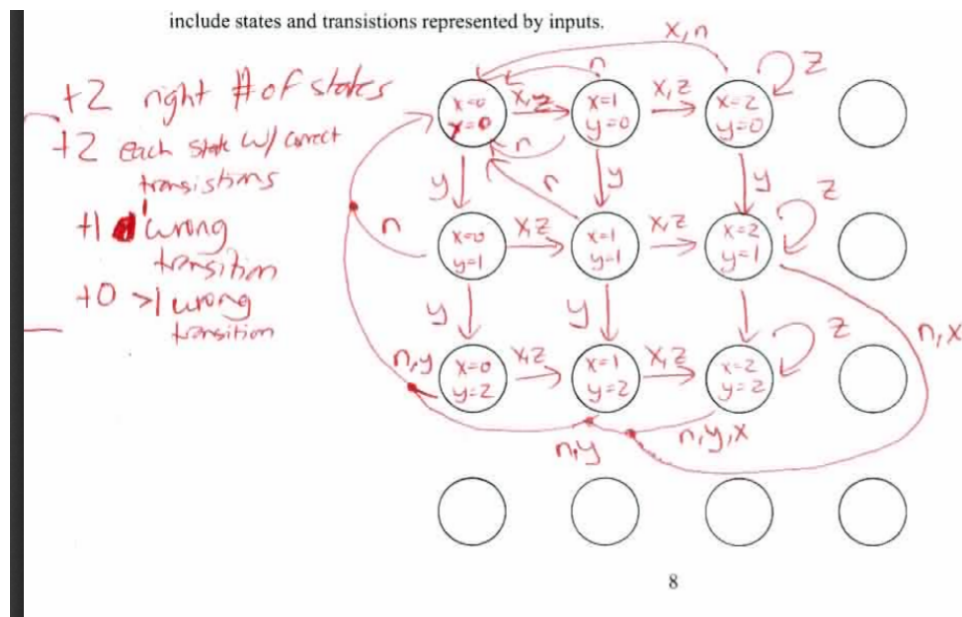 include states and transistions represented by inputs.
+2 right # of states
+2 each state w/ correct
transistions
+1 1 wrong
transition
+0 >1 wrong
transition
x,n
n
z
x=0
y=0
x,z
x=1
y=0
x,z
x=2
y=0
n
y
r
y
y
z
n
x=0
y=1
x,z
x=1
y=1
x,z
x=2
y=1
y
y
z
n,x
n,y
x=0
y=2
x,z
x=1
y=2
x,z
x=2
y=2
n,y
n,y,x
8